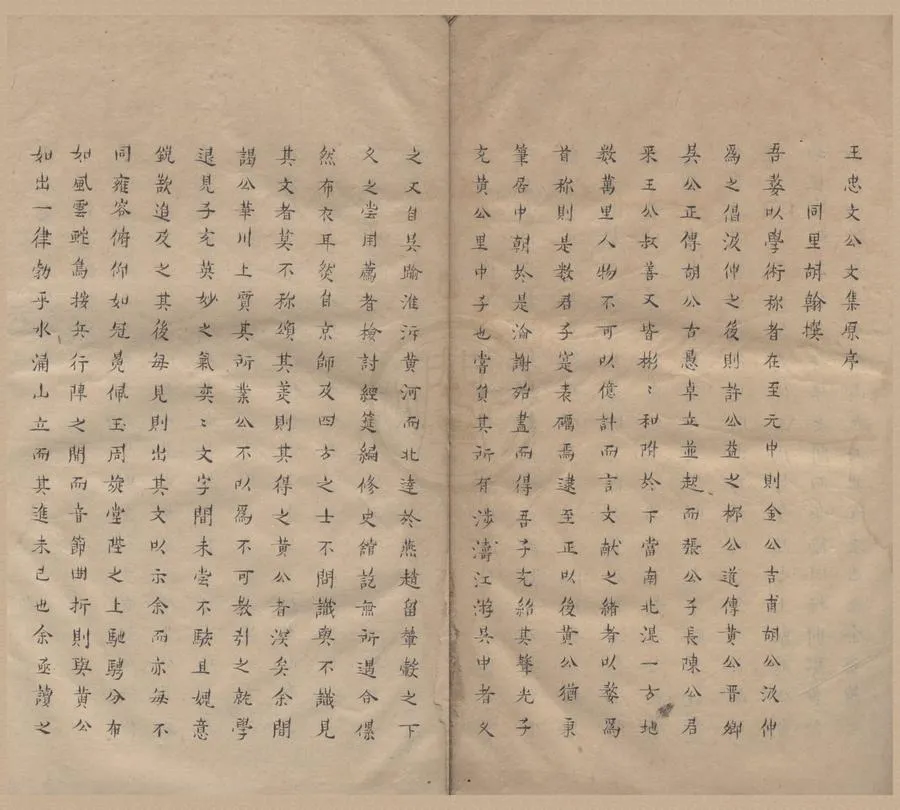 王忠文公文集原序
同里胡翰撰
吾婺以學術称者在至元中則金公吉甫胡公汲仲
為之倡汲仲之後則許公益之柳公道傳黄公晋卿
吳公正傳胡公古愚卓立並起而張公子長陳公君
采王公叔善又皆彬〻和附於下當南北混一方地
数萬里人物不可以億計而言文献之緒者以婺為
首称則是数君子寔表礪焉逮至正以後黄公猶秉
筆居中朝於是淪謝殆盡而得吾子充紹其聲光子
充黄公里中子也嘗負其所有涉濤江游吳中者久
之又自吳踰淮泝黄河而北達於燕趙留輦轂之下
久之嘗用薦者檢討經筵編修史館訖無所遇合傫
然布衣耳然自京師及四方之士不問識與不識見
其文者莫不称頌其美則其得之黄公者深矣余間
謁公華川上質其所業公不以為不可教引之就學
退見子充英妙之氣奕〻文字間未嘗不駭且媿意
鋭欲追及之其後每見則出其文以示余而亦每不
同雍容俯仰如冠冕佩玉周旋堂陛之上馳騁分布
如風雲蛇鳥按兵行陣之間而音節曲折則與黄公
如出一律勃乎水涌山立而其進未已也余亟讀之